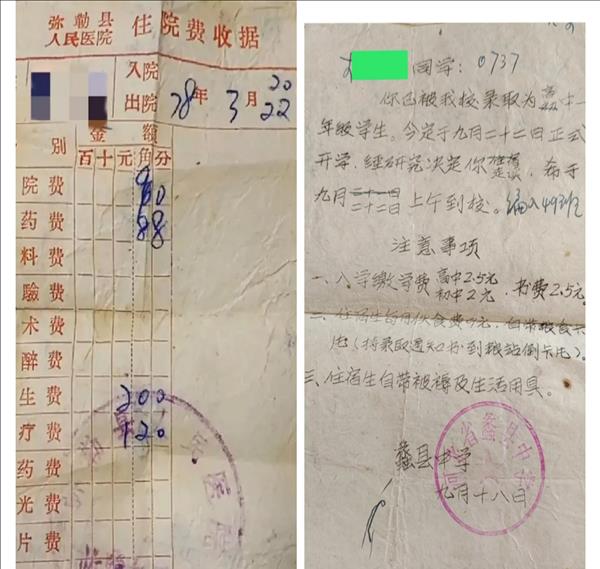 弥勒县
人民医院 住院费收据
入院
出院 78年 3月 20
22
别 金额
百 十 元 角 分
院费 90
药费 88
料费
验费
术费
醉费
生费 200
疗费 120
药费
光费
片费
同学：0737
你已被我校录取为高中一
年级学生。今定于九月二十二日正式
开学，经研究决定你 希于
九月二十二日上午到校。编入49班
注意事项
一、入学缴学费 高中2.5元 初中2元，书费2.5元。
二、住宿生每月伙食费 元，自带粮食
（持录取通知书到粮站倒卡片）。
三、住宿生自带被褥及生活用具。
蠡县中学
九月十八日
省蠡县中